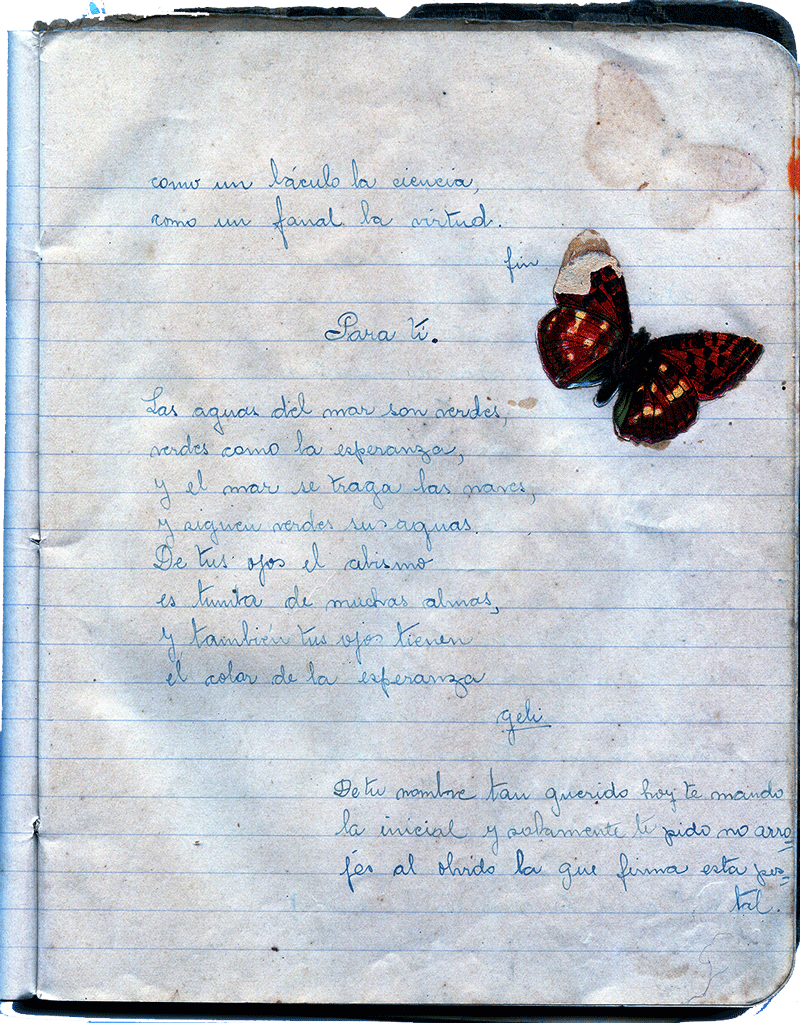 como un báculo la ciencia,
como un fanal la virtud.
fin
Para ti.
Las aguas del mar son verdes,
verdes como la esperanza,
y el mar se traga las naves,
y siguen verdes sus aguas.
De tus ojos el abismo
es tumba de muchas almas,
y también tus ojos tienen
el color de la esperanza
geli
De tu nombre tan querido hoy te mando
la inicial y solamente te pido no arro-
jes al olvido la que firma esta pos-
tal.